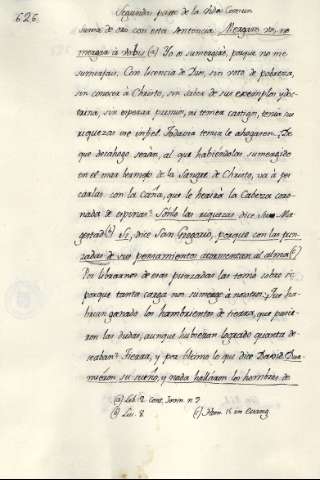 626.
Segunda parte de la Vida Comun
suma de oro con esta sentencia. Mergaro vos, ne
mergar à vobis (a) Yo os sumergiàs, porque no me
sumerjais. Con licencia de Dios, sin voto de pobreza,
sin conocer à Christo, sin saber de sus exemplos y doc-
trina, sin esperar premio, ni temer castigo, tenia sus
riquezas un infiel. Todavia temia le ahogaren. De
que desahogo seràn, al que habiendolas sumergido
en el mar bermejo de la Sangre de Christo, và à pes-
carlas con la Caña, que le heria la Cabeza coro-
nada de espinas? Sonlo las riquezas dice Su Ma-
gestad (b) Si, dice San Gregorio, porque con las pun-
zadas de sus pensamientos atormentan al alma (c)
Por librarnos de esas punzadas las tomò sobre sì,
porque tanta carga nos sumerge à nosotros. Que ha-
brian ganado los hambrientos de tierra, que pasa-
ron las dudas, aunque hubieran logrado quanta de-
seaban? Tierra, y por ultimo lo que dice David: Dur-
mieron su sueño, y nada hallaron los hombres de
(a) Lib. 2. cont. Jovin. n. 9
(b) Luc. 8.
(c) Hom. 15 in Evang.